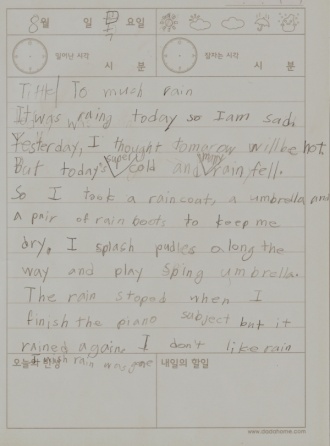 8월 일 요일
일어난 시각 시 분 잠자는 시각 시 분
Title) To mush rain
It was raing today so I am sad.
Yesterday, I thought tomorrow will be hot
But today's super cold and many rain fell.
So I took a raincoat, a umbrella and
a pair of rain boots to keep me
dry. I splash pudles along the
way and play sping umbrella.
The rain stoped when I
finish the piano subject but it
rained again. I don't like rain
오늘의 반성 내일의 할일
mush rain